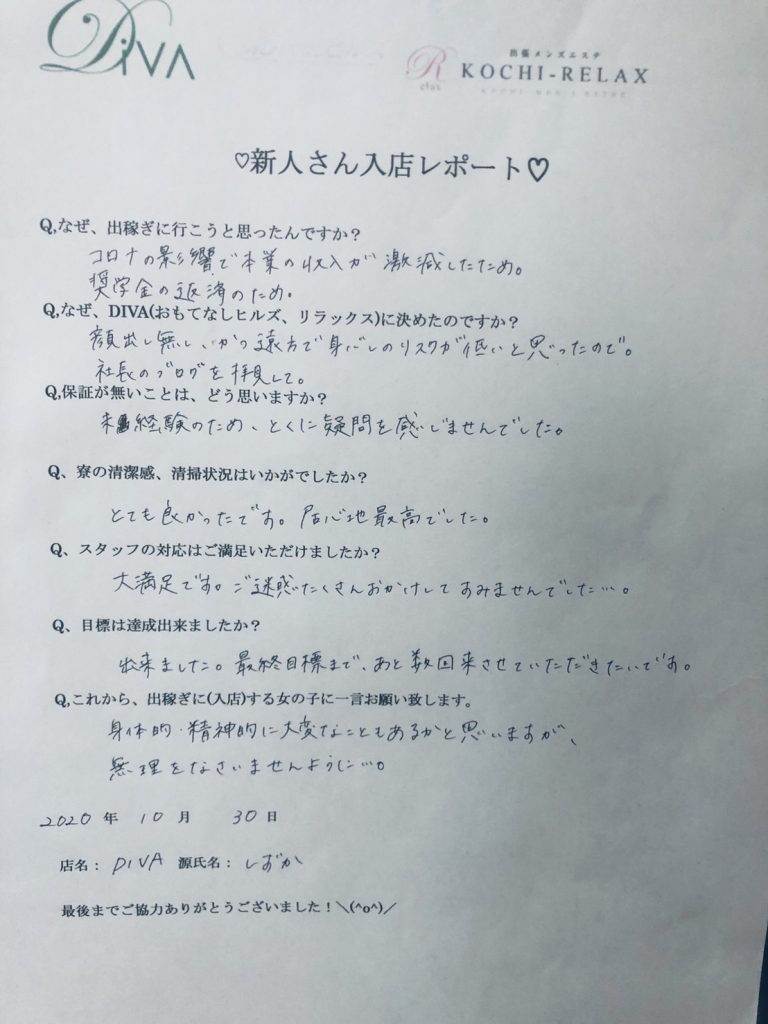 DIVA
出張メンズエステ
R
elax
KOCHI-RELAX
KOCHI MEN'S ESTHE
♡新人さん入店レポート♡
Q,なぜ、出稼ぎに行こうと思ったんですか？
コロナの影響で本業の収入が激減したため。
奨学金の返済のため。
Q,なぜ、DIVA(おもてなしヒルズ、リラックス)に決めたのですか？
顔出し無し、かつ遠方で身バレのリスクが低いと思ったので。
社長のブログを拝見して。
Q,保証が無いことは、どう思いますか？
未経験のため、とくに疑問を感じませんでした。
Q、寮の清潔感、清掃状況はいかがでしたか？
とても良かったです。居心地最高でした。
Q、スタッフの対応はご満足いただけましたか？
大満足です。ご迷惑たくさんおかけしてすみませんでした…。
Q、目標は達成出来ましたか？
出来ました。最終目標まで、あと数回来させていただきたいです。
Q,これから、出稼ぎに(入店)する女の子に一言お願い致します。
身体的・精神的に大変なこともあるかと思いますが、
無理をなさいませんように…。
2020 年 10 月 30 日
店名： DIVA 源氏名： しずか
最後までご協力ありがとうございました！＼(^o^)／